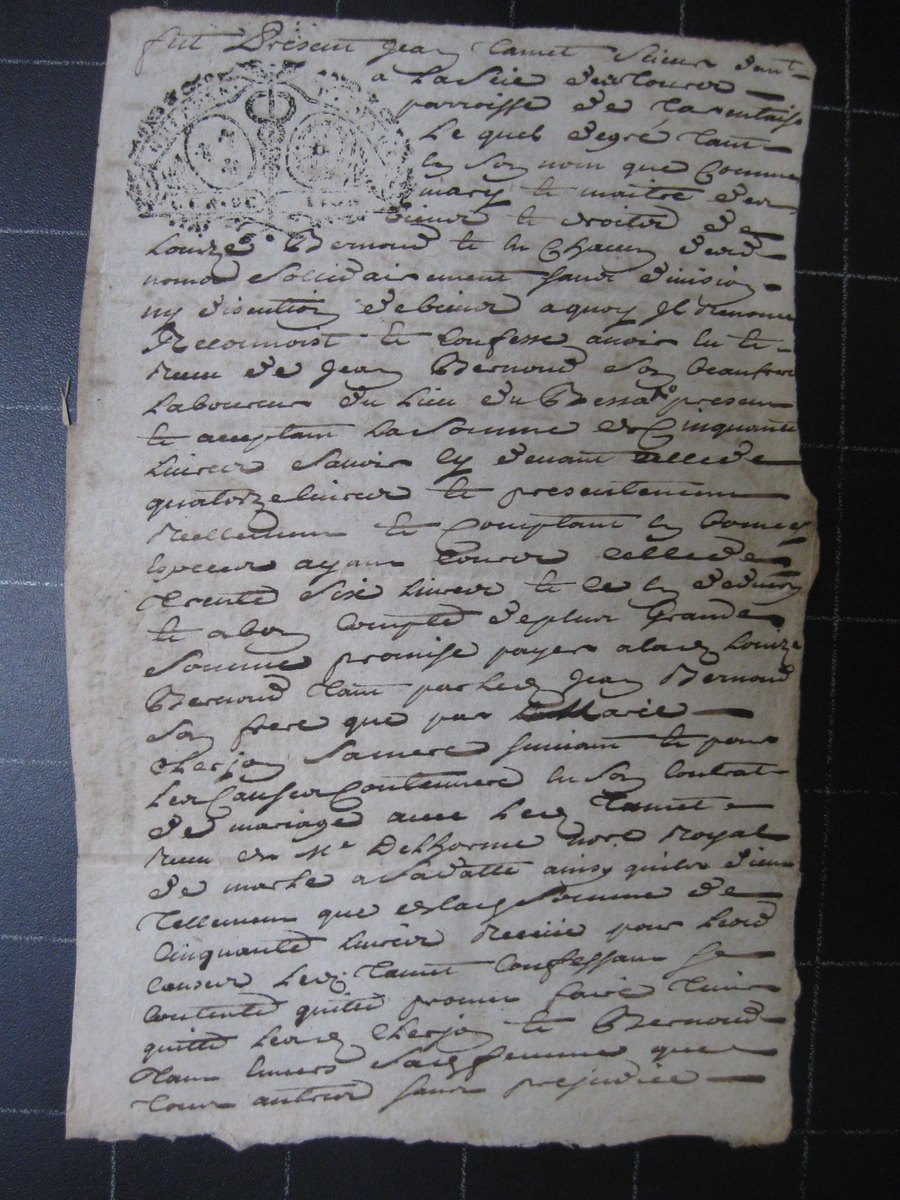 fut Present Jean Tamet Scieur
a La Scie
parroisse de Tarentaise
Lequel de gré tant
en son nom que Comme
mary et maitre des
biens et droits de
Louize Bernoud et en Chacun desd
noms Sollidairement sans division
ny discution de biens a quoy Il Renonce
Reconnoist et Confesse avoir eu et
Receu de Jean Bernoud Son beaufrere
Laboureur du Lieu du Bessat present
et acceptant La Somme de Cinquante
Livres Savoir cy devant celle de
quatorze livres et presentement
Reellement et Comptant en bonnes
especes ayant Cours celle de
Trente Six Livres et ce en deduction
et a bon Compte de plus Grande
Somme promise payer a lad Louize
Bernoud tant par led Jean Bernoud
Son frere que par Marie
Cherjon Sa mere suivant et pour
Les Causes Contenues en Son Contrat
de mariage avec Led Tamet
Receu de Me Delhorme nore Royal
de ainsy quils disent
Tellement que de lad Somme de
Cinquante Livres Receüe pour lesd
causes Led Tamet Confessant Se
Contente quitte promet faire tenir
quitte lesd Cherjon et Bernoud
tant envers Sad femme que
tous autres sans prejudice